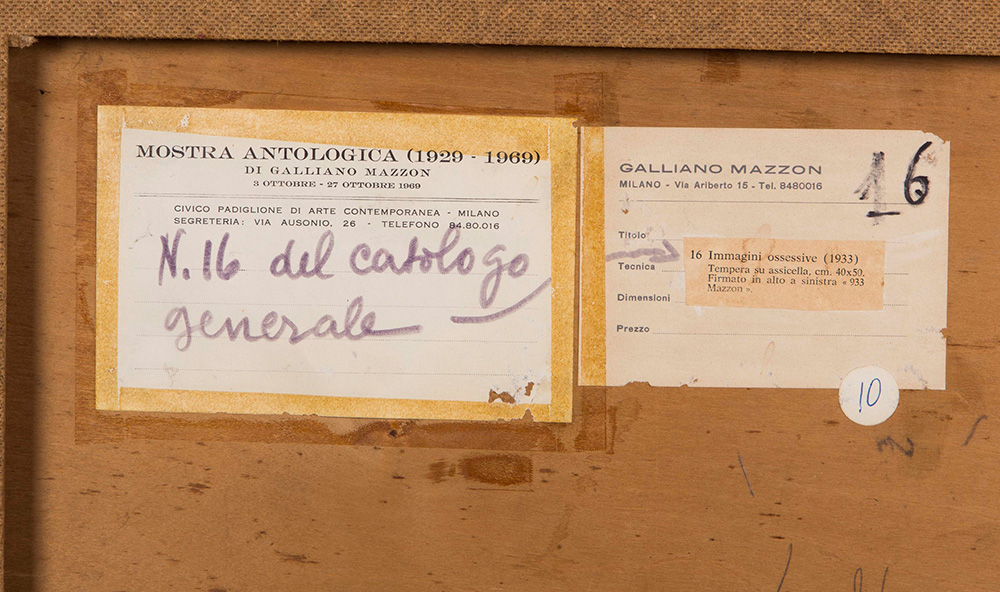 MOSTRA ANTOLOGICA (1929 - 1969)
DI GALLIANO MAZZON
3 OTTOBRE - 27 OTTOBRE 1969
CIVICO PADIGLIONE DI ARTE CONTEMPORANEA - MILANO
SEGRETERIA: VIA AUSONIO, 26 - TELEFONO 84.80.016
N. 16 del catologo
generale
GALLIANO MAZZON
MILANO - Via Ariberto 15 - Tel. 8480016
16
Titolo
Tecnica
Dimensioni
Prezzo
16 Immagini ossessive (1933)
Tempera su assicella, cm. 40x50.
Firmato in alto a sinistra « 933
Mazzon ».
10